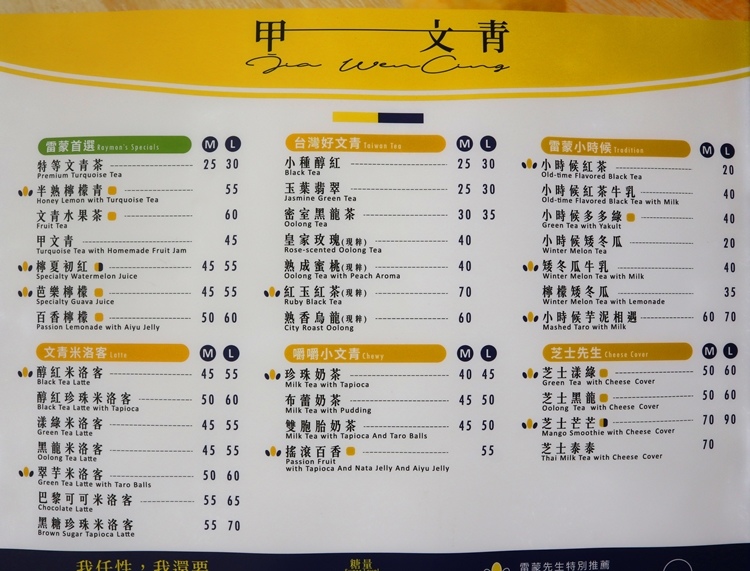 甲文青
Jia Wen Cing
雷蒙首選 Raymon's Specials M L
特等文青茶 25 30
Premium Turquoise Tea
半熟檸檬青 55
Honey Lemon with Turquoise Tea
文青水果茶 60
Fruit Tea
甲文青 45
Turquoise Tea with Homemade Fruit Jam
檸夏初紅 45 55
Specialty Watermelon Juice
芭樂檸檬 45 55
Specialty Guava Juice
百香檸檬 50 60
Passion Lemonade with Aiyu Jelly
文青米洛客 Latte M L
醇紅米洛客 45 55
Black Tea Latte
醇紅珍珠米洛客 50 60
Black Tea Latte with Tapioca
漾綠米洛客 45 55
Green Tea Latte
黑龍米洛客 45 55
Oolong Tea Latte
翠芋米洛客 50 60
Green Tea Latte with Taro Balls
巴黎可可米洛客 55 65
Chocolate Latte
黑糖珍珠米洛客 55 70
Brown Sugar Tapioca Latte
台灣好文青 Taiwan Tea M L
小種醇紅 25 30
Black Tea
玉葉翡翠 25 30
Jasmine Green Tea
密室黑龍茶 30 35
Oolong Tea
皇家玫瑰(現粹) 40
Rose-scented Oolong Tea
熟成蜜桃(現粹) 40
Oolong Tea with Peach Aroma
紅玉紅茶(現粹) 70
Ruby Black Tea
熟香烏龍(現粹) 60
City Roast Oolong
嚼嚼小文青 Chewy M L
珍珠奶茶 40 45
Milk Tea with Tapioca
布蕾奶茶 45 50
Milk Tea with Pudding
雙胞胎奶茶 45 50
Milk Tea with Tapioca And Taro Balls
搖滾百香 55
Passion Fruit
with Tapioca And Nata Jelly And Aiyu Jelly
雷蒙小時候 Tradition M L
小時候紅茶 20
Old-time Flavored Black Tea
小時候紅茶牛乳 40
Old-time Flavored Black Tea with Milk
小時候多多綠 40
Green Tea with Yakult
小時候矮冬瓜 20
Winter Melon Tea
矮冬瓜牛乳 40
Winter Melon Tea with Milk
檸檬矮冬瓜 35
Winter Melon Tea with Lemonade
小時候芋泥相遇 60 70
Mashed Taro with Milk
芝士先生 Cheese Cover M L
芝士漾綠 50 60
Green Tea with Cheese Cover
芝士黑龍 50 60
Oolong Tea with Cheese Cover
芝士芒芒 70 90
Mango Smoothie with Cheese Cover
芝士泰泰 70
Thai Milk Tea with Cheese Cover
我任性，我還要
糖量
雷蒙先生特別推薦